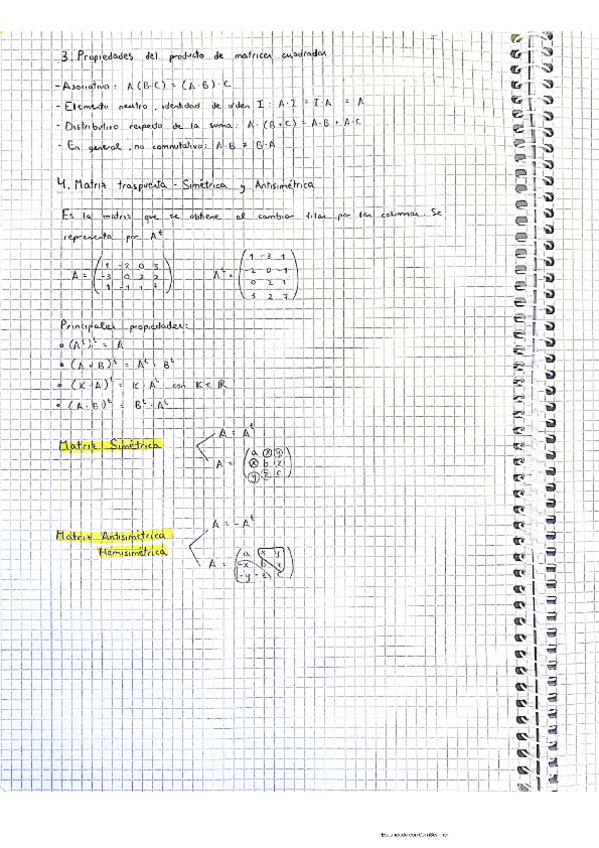 3. Propiedades del producto de matrices cuadradas
- Asociativo: A(B·C) = (A·B)·C
- Elemento neutro, identidad de orden I: A·I = I·A = A
- Distributiro respecto de la suma: A·(B+C) = A·B + A·C
- En general, no conmutativo: A·B ≠ B·A
4. Matriz traspuesta - Simétrica y Antisimétrica
Es la matriz que se obtiene al cambiar filas por las columnas. Se
representa por Aᵗ
A = ( 1 -2 0 3
-3 0 2 2
1 -1 1 7 )
Aᵗ = ( 1 -3 1
-2 0 -1
0 2 1
3 2 7 )
Principales propiedades:
• (Aᵗ)ᵗ = A
• (A+B)ᵗ = Aᵗ + Bᵗ
• (K·A)ᵗ = K·Aᵗ con K ∈ R
• (A·B)ᵗ = Bᵗ·Aᵗ
Matriz Simétrica
A = Aᵗ
A = ( a x y
x b z
y z c )
Matriz Antisimétrica
Hemisimétrica
A = -Aᵗ
A = ( a x y
-x b z
-y -z c )
Escaneado con CamScanner